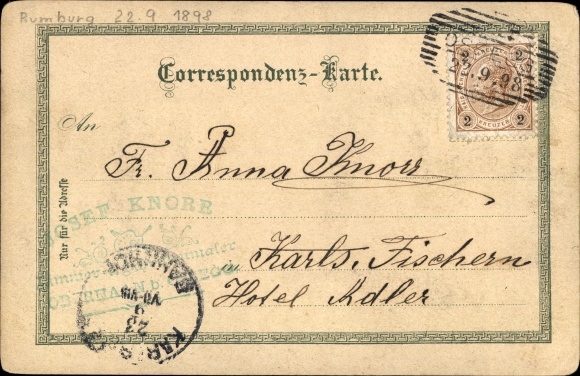 Rumburg 22.9 1898
Correspondenz-Karte.
2 2
2 KREUZER 2
9.98
An
Fr. Anna Knorr
Nur für die Adresse
JOSEF KNORR
Karls. Fischern
Hotel Adler
BAHNHOF
VII-VIII
9
23
KARLSB